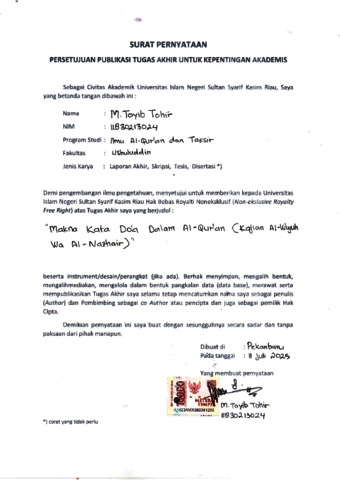 SURAT PERNYATAAN
PERSETUJUAN PUBLIKASI TUGAS AKHIR UNTUK KEPENTINGAN AKADEMIS
Sebagai Civitas Akademik Universitas Islam Negeri Sultan Syarif Kasim Riau, Saya
yang betanda tangan dibawah ini :
Nama : M. Toyib Tohir
NIM : 11830213024
Program Studi : Ilmu Al-Qur'an dan Tafsir
Fakultas : Ushuluddin
Jenis Karya : Laporan Akhir, Skripsi, Tesis, Disertasi *)
Demi pengembangan ilmu pengetahuan, menyetujui untuk memberikan kepada Universitas
Islam Negeri Sultan Syarif Kasim Riau Hak Bebas Royalti Noneksklusif (Non-ekslusive Royalty
Free Right) atas Tugas Akhir saya yang berjudul :
"Makna Kata Doa Dalam Al-Qur'an (Kajian Al-Wujuh
Wa Al-Nazhair)"
beserta instrument/desain/perangkat (jika ada). Berhak menyimpan, mengalih bentuk,
mengalihmediakan, mengelola dalam bentuk pangkalan data (data base), merawat serta
mempublikasikan Tugas Akhir saya selama tetap mencatumkan nama saya sebagai penulis
(Author) dan Pembimbing sebagai co Author atau pencipta dan juga sebagai pemilik Hak
Cipta.
Demikian pernyataan ini saya buat dengan sesungguhnya secara sadar dan tanpa
paksaan dari pihak manapun.
Dibuat di : Pekanbaru
Pada tanggal : 11 Juli 2025
Yang membuat pernyataan
METERAI
TEMPEL
M. Toyib Tohir
11830213024
*) coret yang tidak perlu